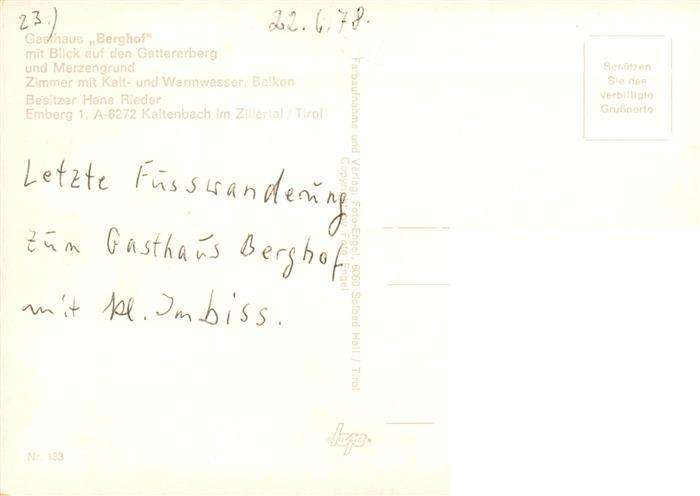 23.)
22.6.78.
Gasthaus „Berghof"
mit Blick auf den Gattererberg
und Merzengrund
Zimmer mit Kalt- und Warmwasser, Balkon
Besitzer Hans Rieder
Emberg 1, A-6272 Kaltenbach im Zillertal / Tirol
Benützen
Sie das
verbilligte
Grußporto
Letzte Fusswanderung
zum Gasthaus Berghof
mit kl. Imbiss.
Farbaufnahme und Verlag, Foto-Engel, 6060 Solbad Hall / Tirol
Copyright by Foto Engel
Nr. 133